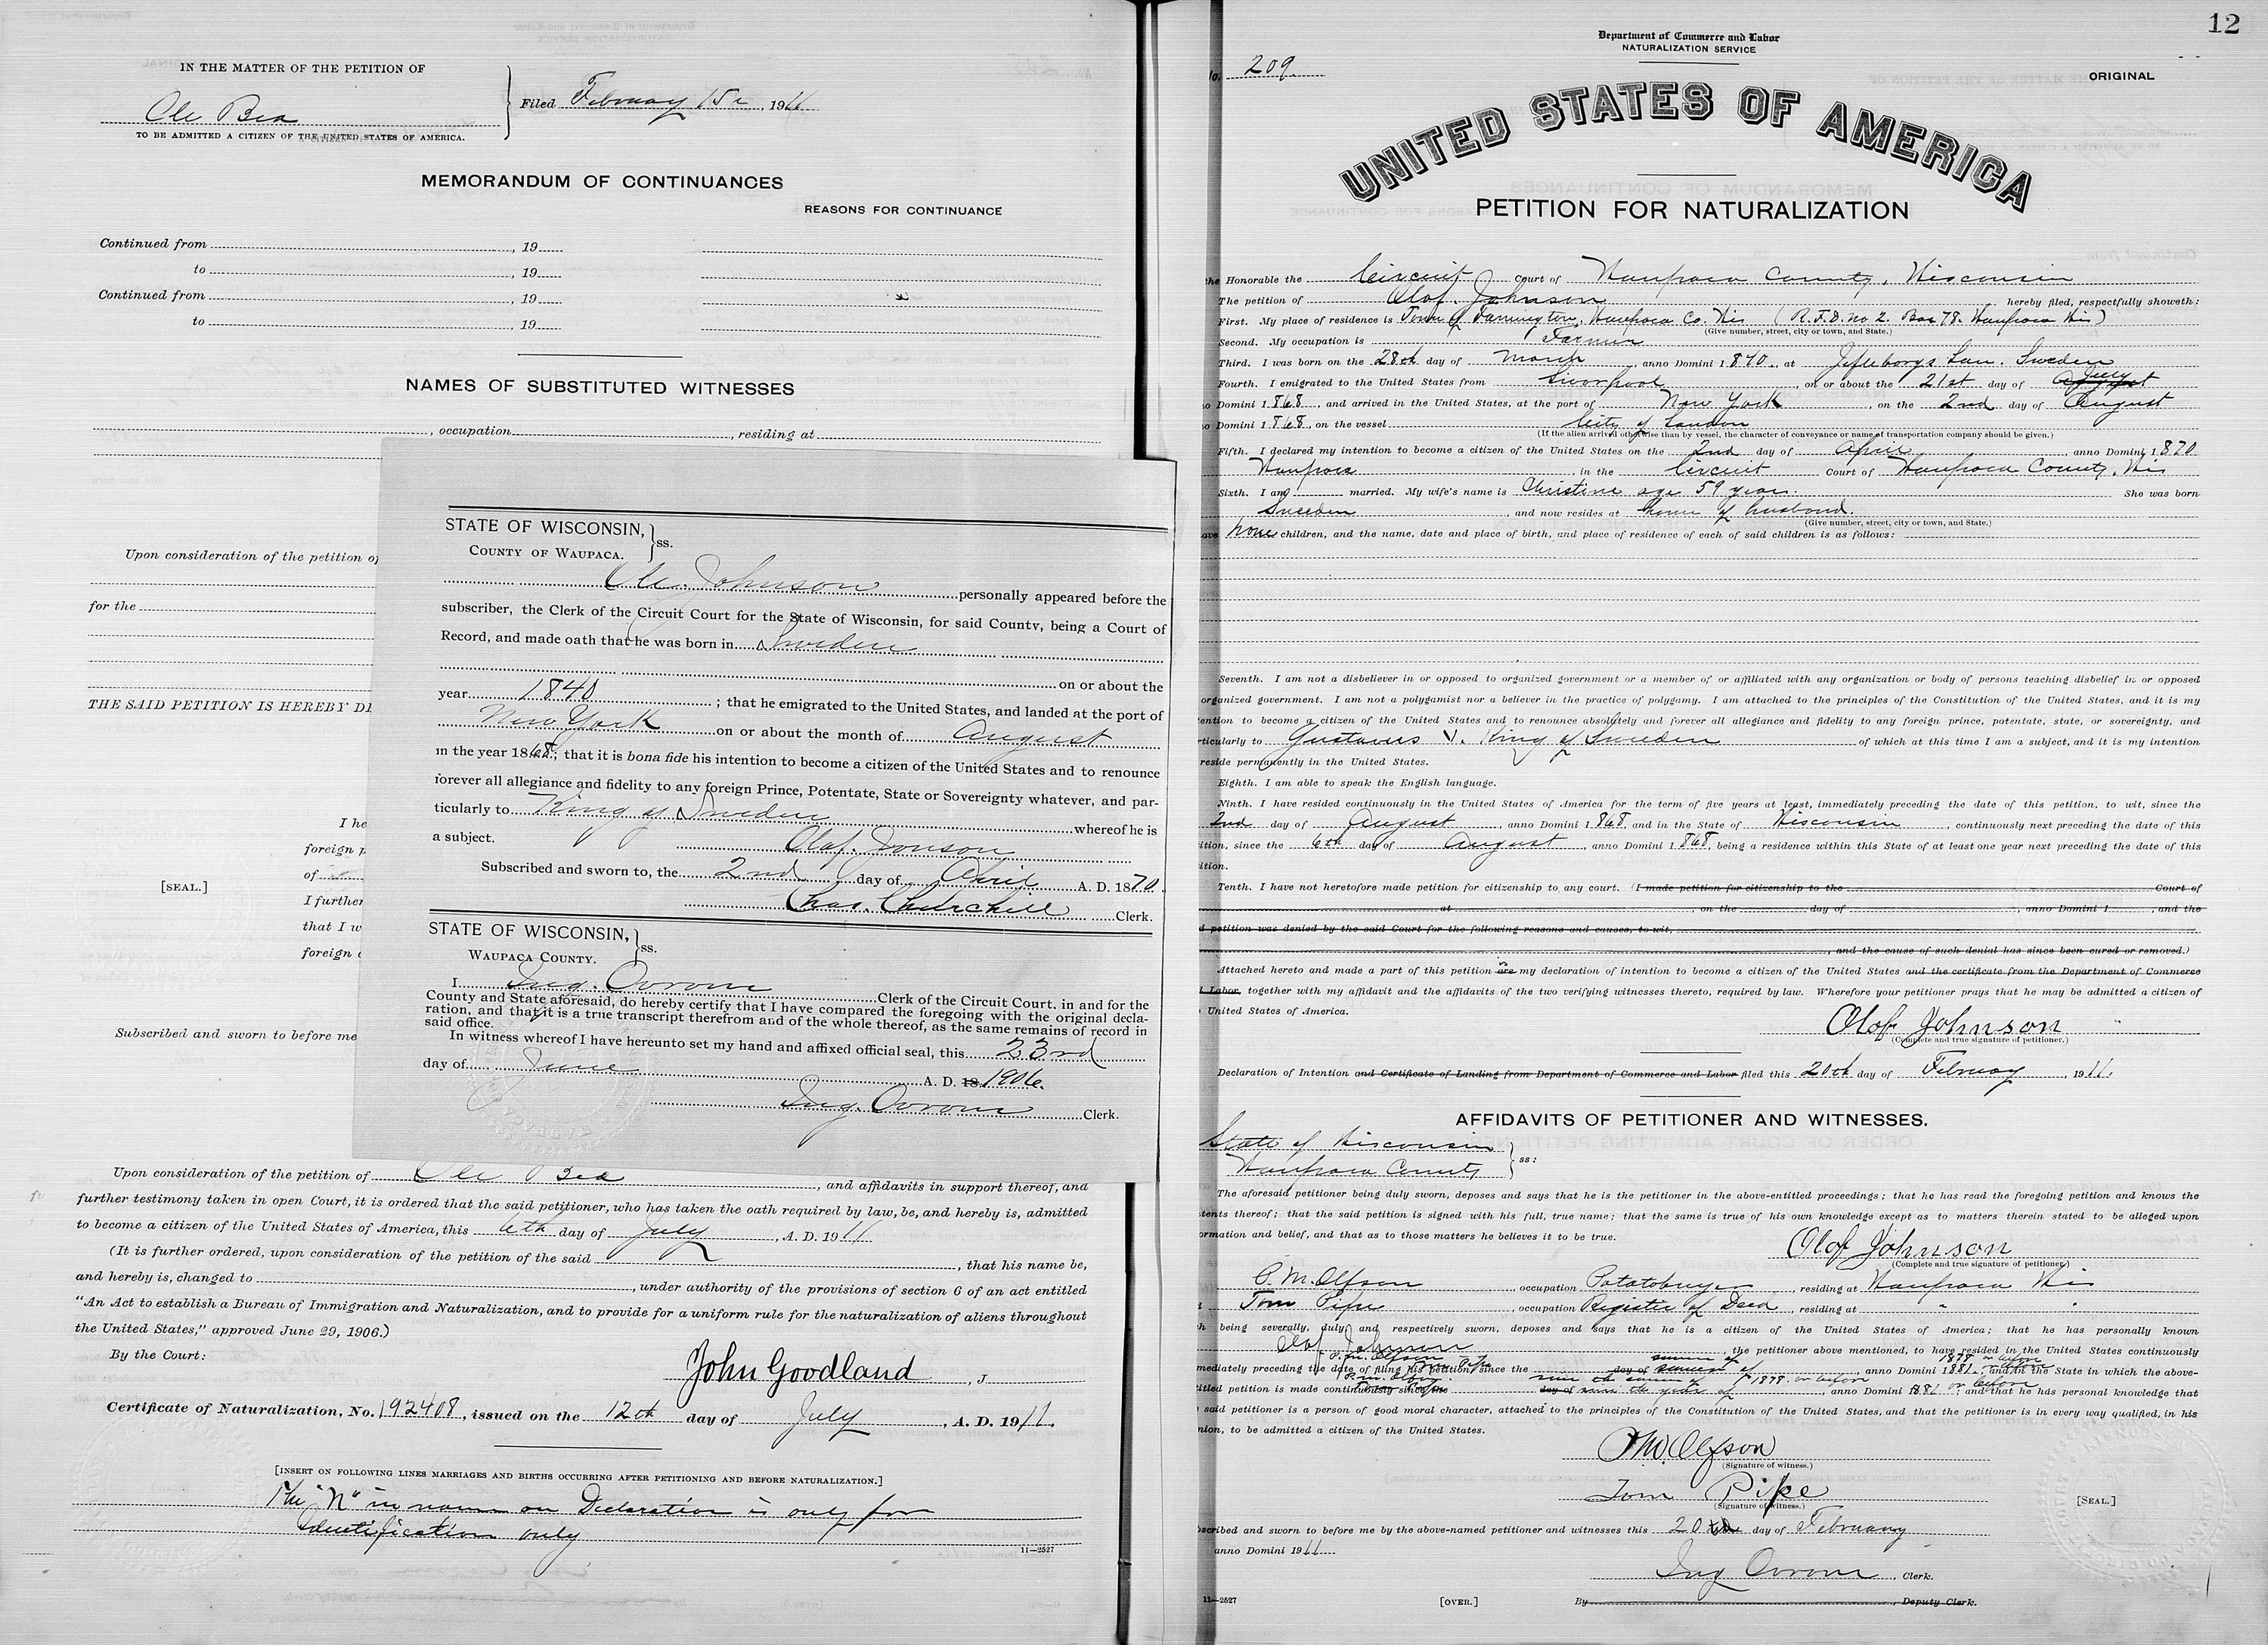 IN THE MATTER OF THE PETITION OF
Ole Bea
TO BE ADMITTED A CITIZEN OF THE UNITED STATES OF AMERICA.
Filed February 15, 1911
MEMORANDUM OF CONTINUANCES
REASONS FOR CONTINUANCE
Continued from , 19
to , 19
Continued from , 19
to , 19
NAMES OF SUBSTITUTED WITNESSES
, occupation , residing at
Upon consideration of the petition of
for the
THE SAID PETITION IS HEREBY DE
I he
foreign p
of
[SEAL.] I further
that I w
foreign
Subscribed and sworn to before me
STATE OF WISCONSIN, } ss.
COUNTY OF WAUPACA.
Ole Johnson personally appeared before the
subscriber, the Clerk of the Circuit Court for the State of Wisconsin, for said County, being a Court of
Record, and made oath that he was born in Sweden
on or about the
year 1840 ; that he emigrated to the United States, and landed at the port of
New York on or about the month of August
in the year 1868; that it is bona fide his intention to become a citizen of the United States and to renounce
forever all allegiance and fidelity to any foreign Prince, Potentate, State or Sovereignty whatever, and par-
ticularly to King of Sweden whereof he is
a subject. Olaf Jonson
Subscribed and sworn to, the 2nd day of April A. D. 1870.
Chas. Churchill Clerk.
STATE OF WISCONSIN, } ss.
WAUPACA COUNTY.
I Ing. Ovrom Clerk of the Circuit Court. in and for the
County and State aforesaid, do hereby certify that I have compared the foregoing with the original decla-
ration, and that it is a true transcript therefrom and of the whole thereof, as the same remains of record in
said office.
In witness whereof I have hereunto set my hand and affixed official seal, this 23rd
day of June A. D. 18 1906.
Ing. Ovrom Clerk.
Upon consideration of the petition of Ole Bea , and affidavits in support thereof, and
further testimony taken in open Court, it is ordered that the said petitioner, who has taken the oath required by law, be, and hereby is, admitted
to become a citizen of the United States of America, this 6th day of July , A. D. 1911
(It is further ordered, upon consideration of the petition of the said , that his name be,
and hereby is, changed to , under authority of the provisions of section 6 of an act entitled
"An Act to establish a Bureau of Immigration and Naturalization, and to provide for a uniform rule for the naturalization of aliens throughout
the United States," approved June 29, 1906.)
By the Court:
John Goodland , J
Certificate of Naturalization, No. 192408, issued on the 12th day of July , A. D. 1911.
[INSERT ON FOLLOWING LINES MARRIAGES AND BIRTHS OCCURRING AFTER PETITIONING AND BEFORE NATURALIZATION.]
The "N" in name on Declaration is only for
Identification only
11—2527
12
Department of Commerce and Labor
NATURALIZATION SERVICE
No. 209.
ORIGINAL
UNITED STATES OF AMERICA
PETITION FOR NATURALIZATION
the Honorable the Circuit Court of Waupaca County, Wisconsin
The petition of Olof Johnson hereby filed, respectfully showeth:
First. My place of residence is Town of Farmington, Waupaca Co. Wis (R.F.D. no 2. Box 78. Waupaca Wis)
(Give number, street, city or town, and State.)
Second. My occupation is Farmer
Third. I was born on the 28th day of March , anno Domini 1840, at Jefleborgs Lan. Sweden
Fourth. I emigrated to the United States from Liverpool , on or about the 21st day of August July
o Domini 1868 , and arrived in the United States, at the port of New York , on the 2nd day of August
o Domini 1868, on the vessel City of London
(If the alien arrived otherwise than by vessel, the character of conveyance or name of transportation company should be given.)
Fifth. I declared my intention to become a citizen of the United States on the 2nd day of April , anno Domini 1870
Waupaca in the Circuit Court of Waupaca County, Wis
Sixth. I am married. My wife's name is Christine age 59 years. She was born
Sweden , and now resides at home of husband.
(Give number, street, city or town, and State.)
ave none children, and the name, date and place of birth, and place of residence of each of said children is as follows:
Seventh. I am not a disbeliever in or opposed to organized government or a member of or affiliated with any organization or body of persons teaching disbelief in or opposed
organized government. I am not a polygamist nor a believer in the practice of polygamy. I am attached to the principles of the Constitution of the United States, and it is my
ention to become a citizen of the United States and to renounce absolutely and forever all allegiance and fidelity to any foreign prince, potentate, state, or sovereignty, and
rticularly to Gustavus V. King of Sweden of which at this time I am a subject, and it is my intention
reside permanently in the United States.
Eighth. I am able to speak the English language.
Ninth. I have resided continuously in the United States of America for the term of five years at least, immediately preceding the date of this petition, to wit, since the
2nd day of August , anno Domini 1868, and in the State of Wisconsin , continuously next preceding the date of this
ition, since the 6th day of August , anno Domini 1868, being a residence within this State of at least one year next preceding the date of this
ition.
Tenth. I have not heretofore made petition for citizenship to any court. (I made petition for citizenship to the Court of
at , on the day of , anno Domini 1 , and the
d petition was denied by the said Court for the following reasons and causes, to wit,
, and the cause of such denial has since been cured or removed.)
Attached hereto and made a part of this petition are is my declaration of intention to become a citizen of the United States and the certificate from the Department of Commerce
d Labor, together with my affidavit and the affidavits of the two verifying witnesses thereto, required by law. Wherefore your petitioner prays that he may be admitted a citizen of
United States of America.
Olof Johnson
(Complete and true signature of petitioner.)
Declaration of Intention and Certificate of Landing from Department of Commerce and Labor filed this 20th day of February , 1911.
AFFIDAVITS OF PETITIONER AND WITNESSES.
State of Wisconsin } ss:
Waupaca County
The aforesaid petitioner being duly sworn, deposes and says that he is the petitioner in the above-entitled proceedings; that he has read the foregoing petition and knows the
tents thereof; that the said petition is signed with his full, true name; that the same is true of his own knowledge except as to matters therein stated to be alleged upon
ormation and belief, and that as to those matters he believes it to be true.
Olof Johnson
(Complete and true signature of petitioner.)
P. M. Olfson , occupation Potatobuyer , residing at Waupaca Wis
Tom Pipe , occupation Register of Deed , residing at " "
h being severally, duly and respectively sworn, deposes and says that he is a citizen of the United States of America; that he has personally known
Olof Johnson , the petitioner above mentioned, to have resided in the United States continuously
mediately preceding the date of filing his petition since the day of , anno Domini 1881 and in the State in which the above-
titled petition is made continuously since the day of , anno Domini 1881 and that he has personal knowledge that
said petitioner is a person of good moral character, attached to the principles of the Constitution of the United States, and that the petitioner is in every way qualified, in his
nion, to be admitted a citizen of the United States.
P M Olfson
(Signature of witness.)
Tom Pipe
(Signature of witness.)
[SEAL.]
scribed and sworn to before me by the above-named petitioner and witnesses this 20th day of February
anno Domini 1911
Ing Ovrom , Clerk.
11—2527 [OVER.] By , Deputy Clerk.